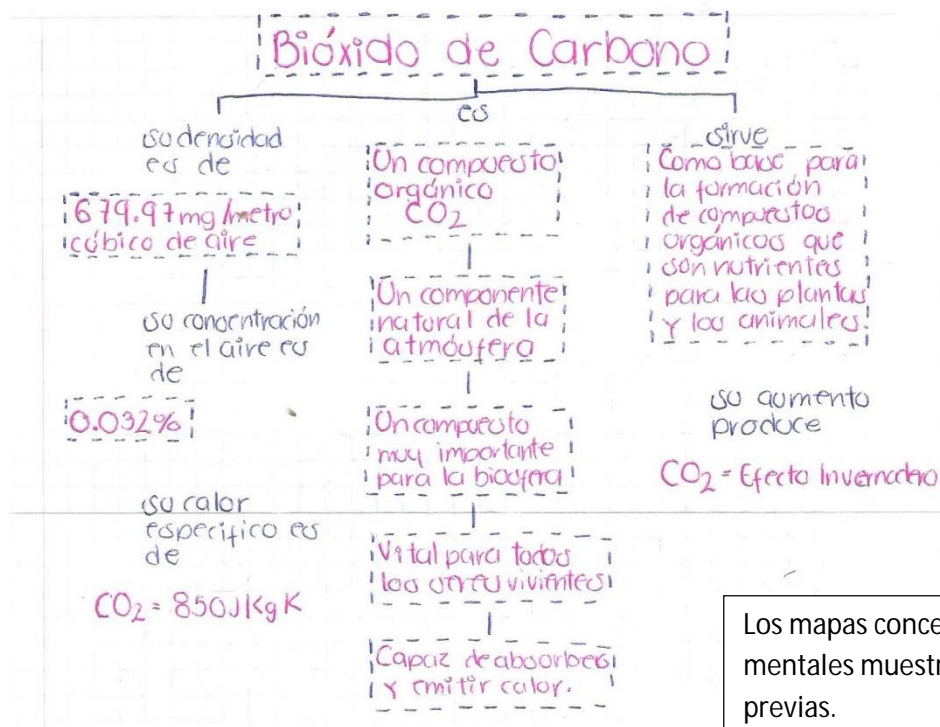 Bióxido de Carbono
su densidad
es de
679.97 mg/metro
cúbico de aire
su concentración
en el aire es
de
0.032%
su calor
especifico es
de
CO₂ = 850J KgK
es
Un compuesto
orgánico
CO₂
Un componente
natural de la
atmósfera
Un compuesto
muy importante
para la biosfera
Vital para todos
los seres vivientes
Capaz de absorber
y emitir calor.
sirve
Como base para
la formación
de compuestos
orgánicos que
son nutrientes
para las plantas
y los animales.
su aumento
produce
CO₂ = Efecto Invernadero
Los mapas conce
mentales muestr
previas.